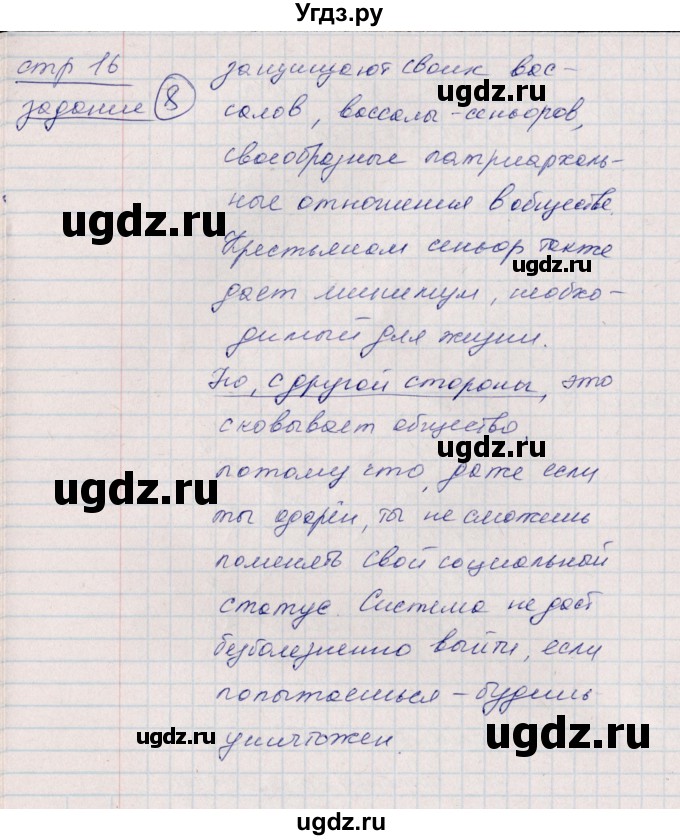 Угдз.ру
стр 16
задание 8
защищают своих вас-
салов, вассалы - сеньоров,
своеобразные патриархаль-
ные отношения в обществе.
Крестьянам сеньор также
дает минимум, необхо-
димый для жизни.
Но, с другой стороны, это
сковывает общество,
потому что, даже если
ты одарён, ты не сможешь
поменять свой социальной
статус. Система не даст
безболезненно выйти, если
попытаешься - будешь
уничтожен.
ugdz.ru
ugdz.ru
ugdz.ru
ugdz.ru
ugdz.ru
ugdz.ru
ugdz.ru
ugdz.ru
ugdz.ru